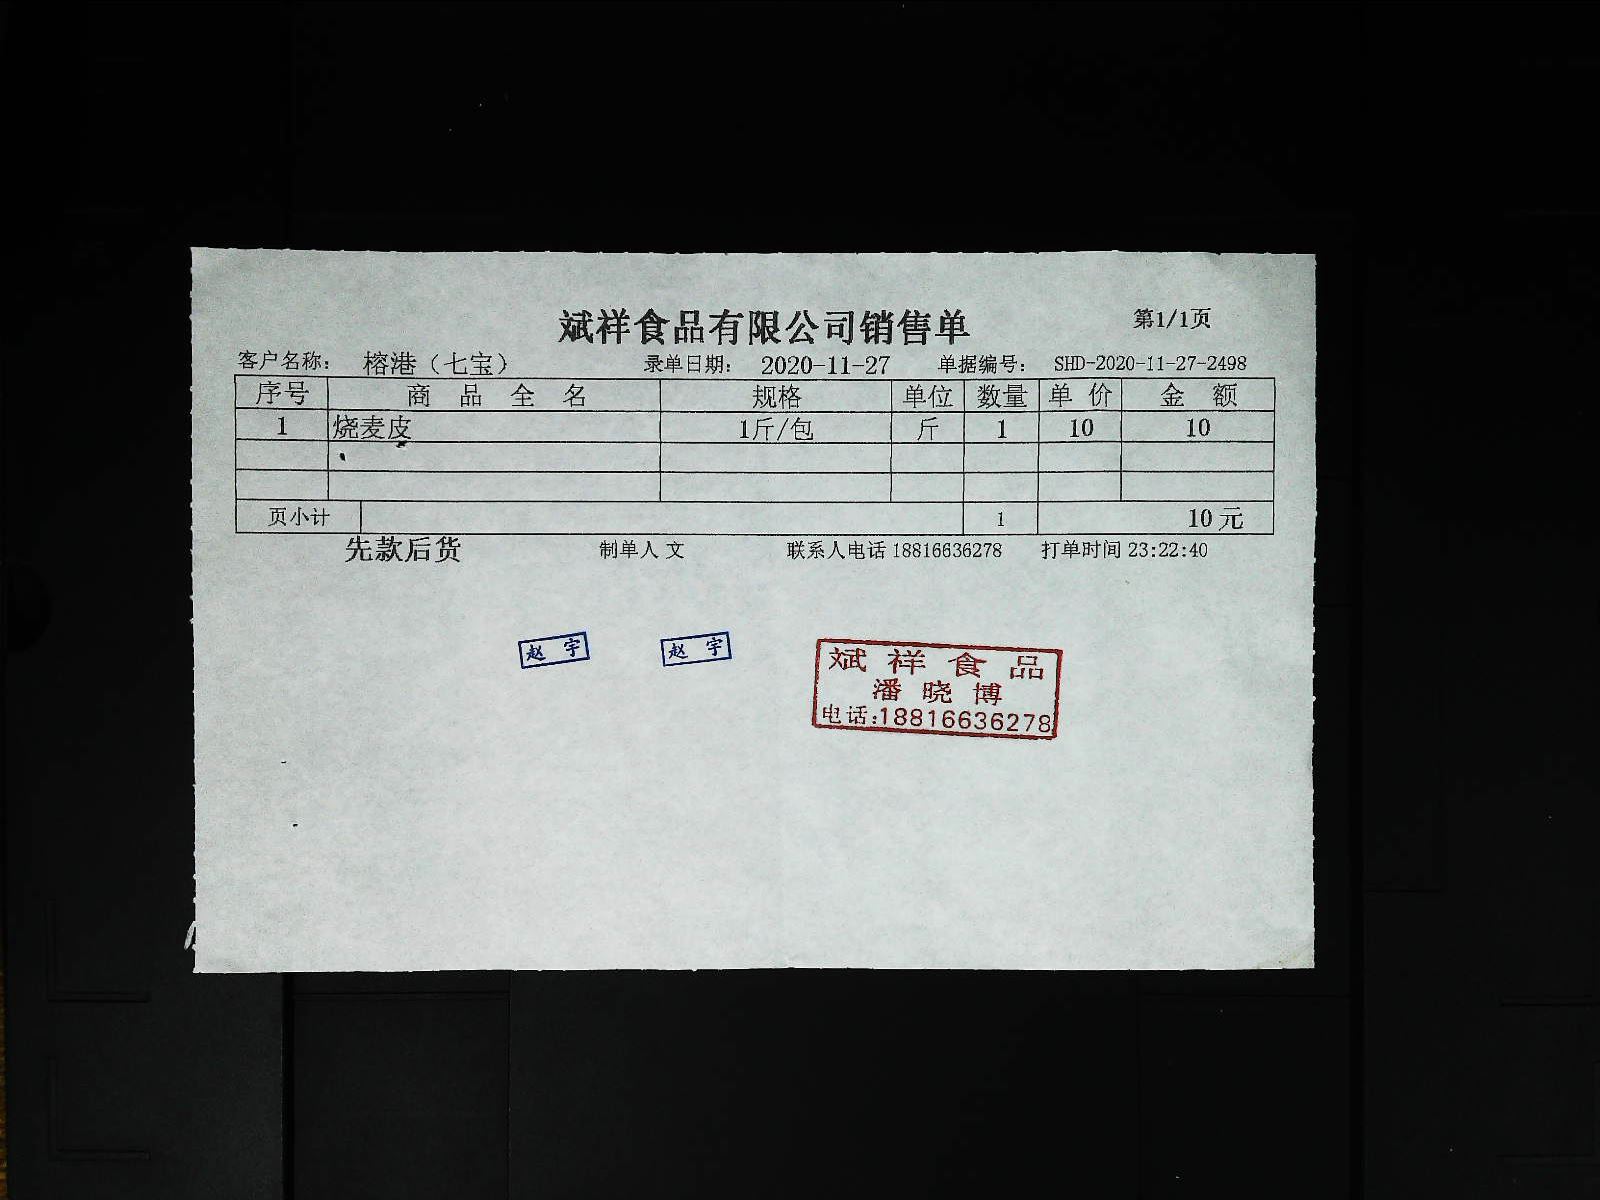 斌祥食品有限公司销售单 第1/1页
客户名称： 榕港（七宝） 录单日期： 2020-11-27 单据编号： SHD-2020-11-27-2498
序号 商品全名 规格 单位 数量 单价 金额
1 烧麦皮 1斤/包 斤 1 10 10
页小计 1 10元
先款后货 制单人 文 联系人电话 18816636278 打单时间 23:22:40
赵宇 赵宇
斌祥食品
潘晓博
电话:18816636278